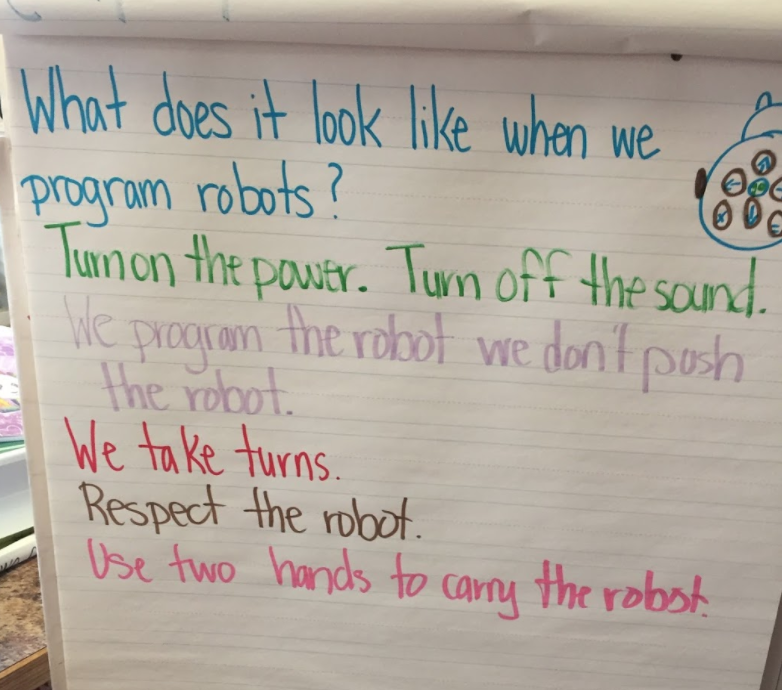 What does it look like when we
program robots?
Turn on the power. Turn off the sound.
We program the robot we don't push
the robot.
We take turns.
Respect the robot.
Use two hands to carry the robot.